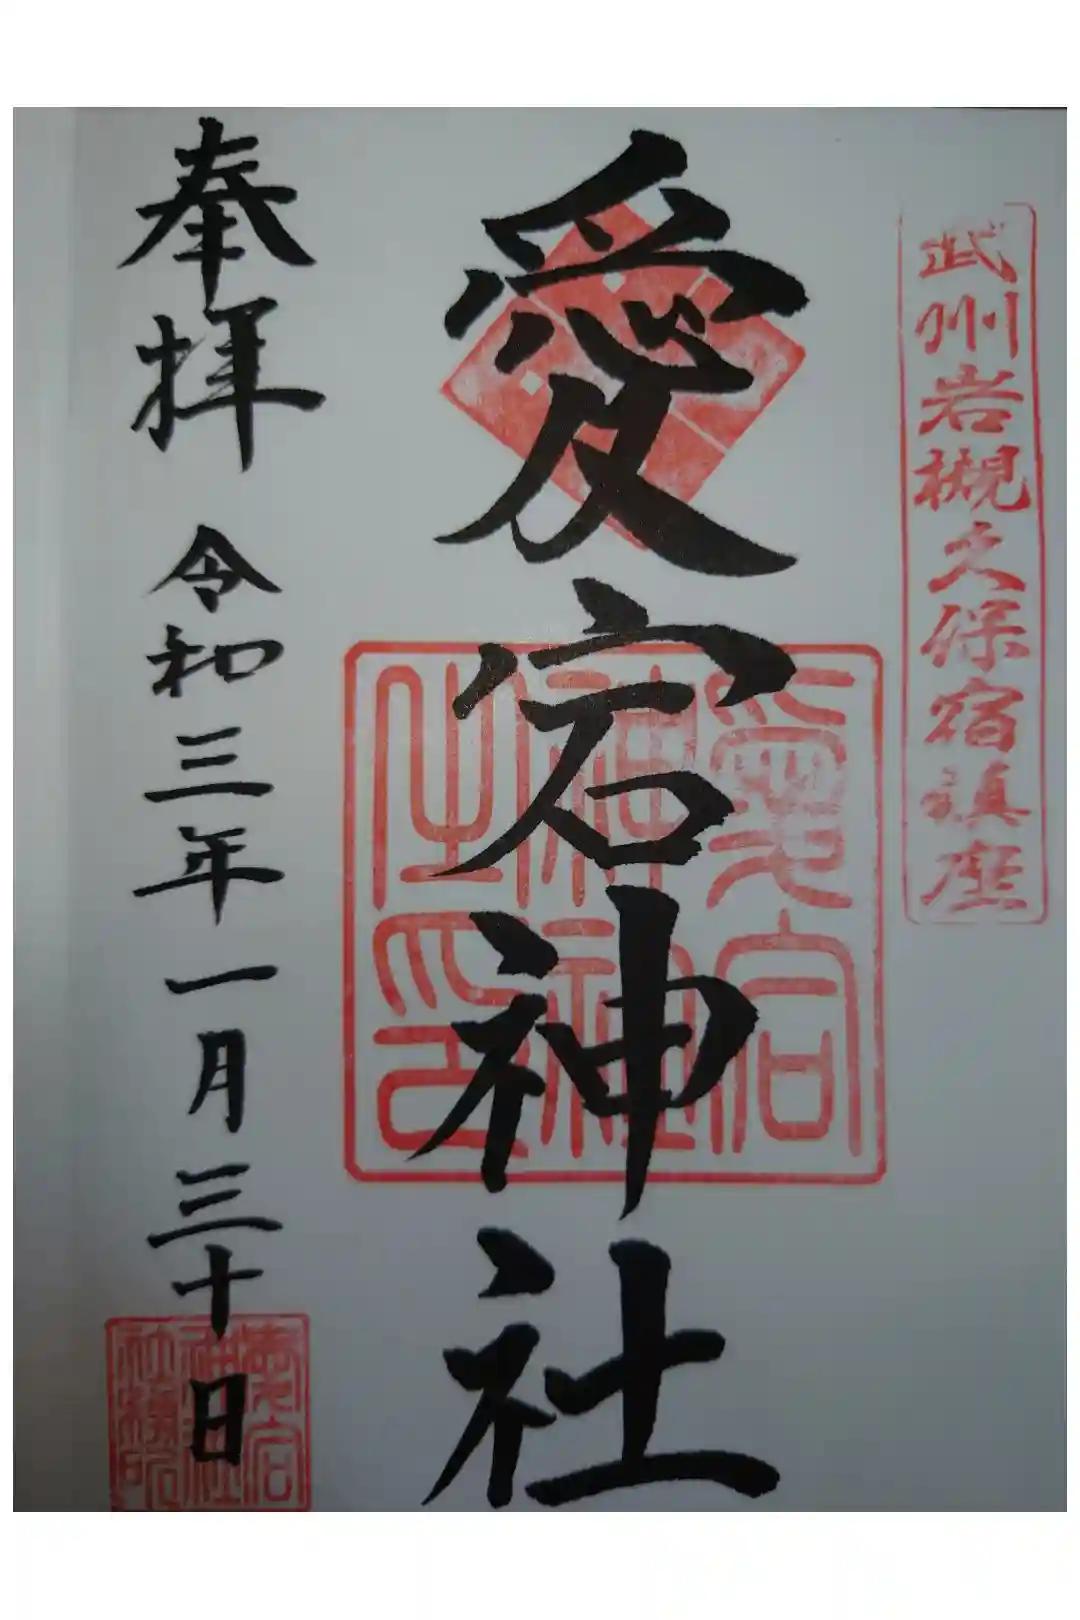 武州岩槻久保宿鎮座
愛宕神社
愛宕
神社
之印
奉拝
令和三年一月三十日
愛宕
神社
社務所